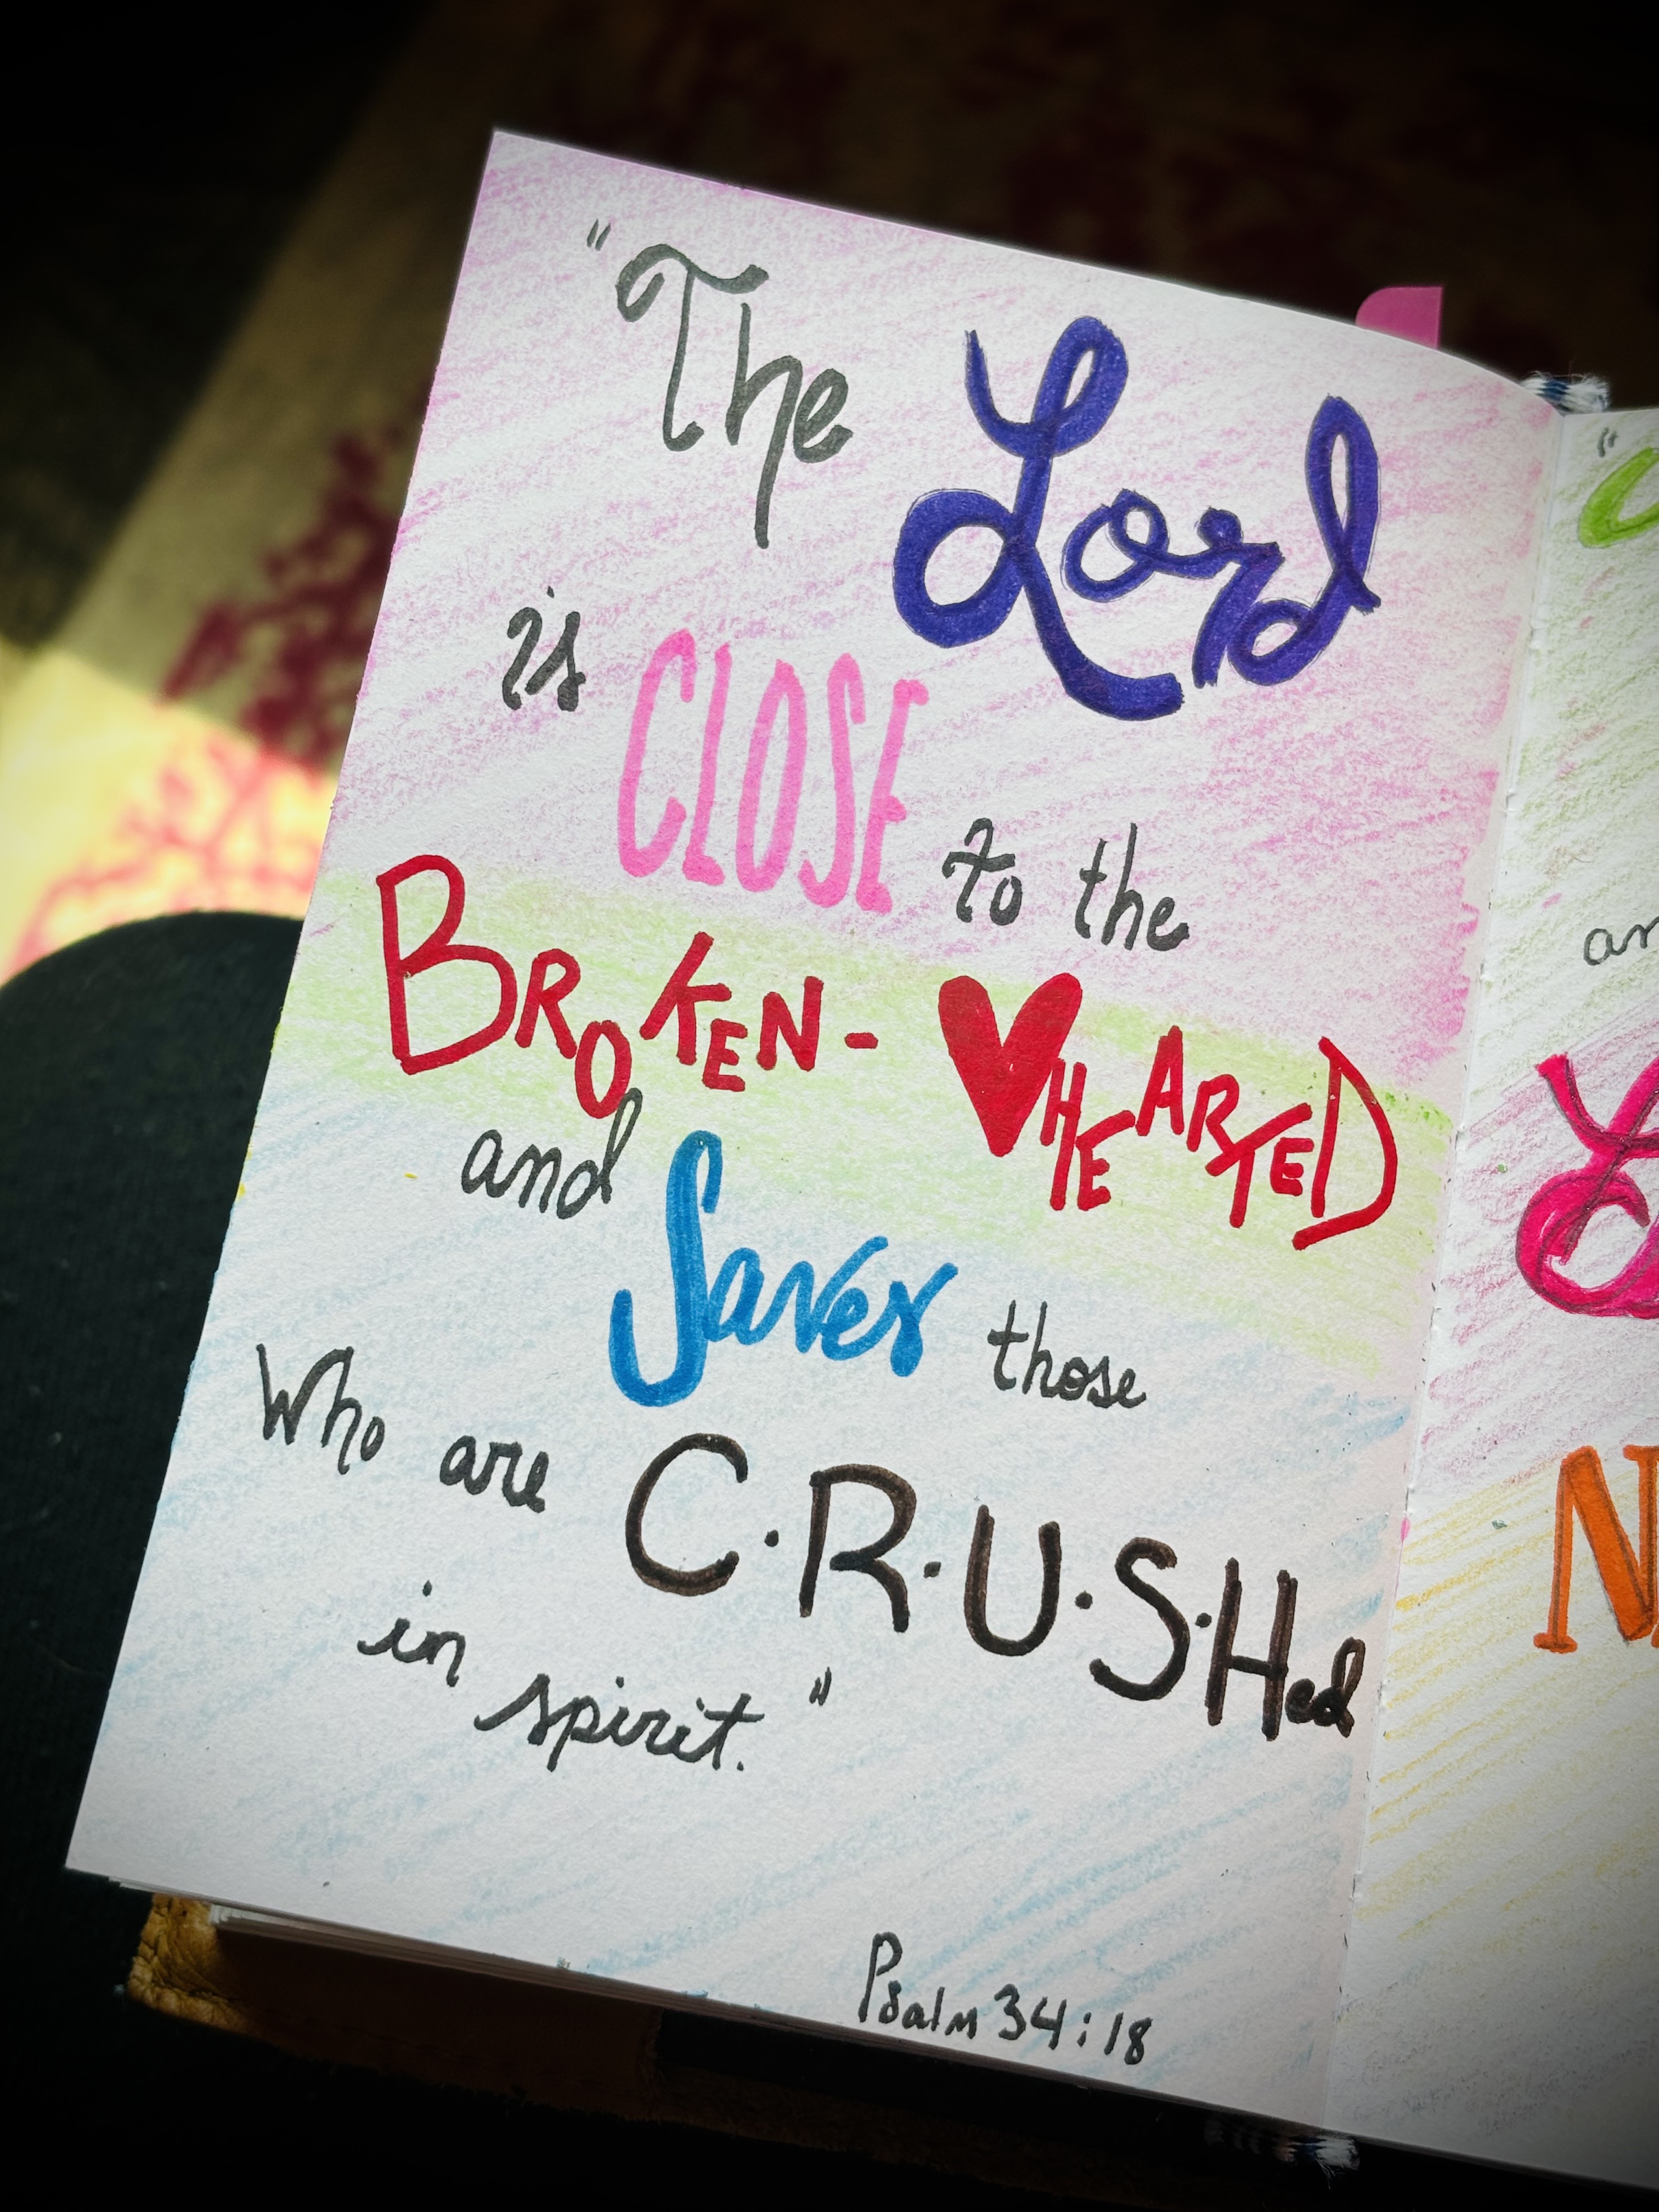 "The Lord
is CLOSE to the
BROKEN-HEARTED
and Saves those
Who are C.R.U.S.Hed
in spirit."
Psalm 34:18